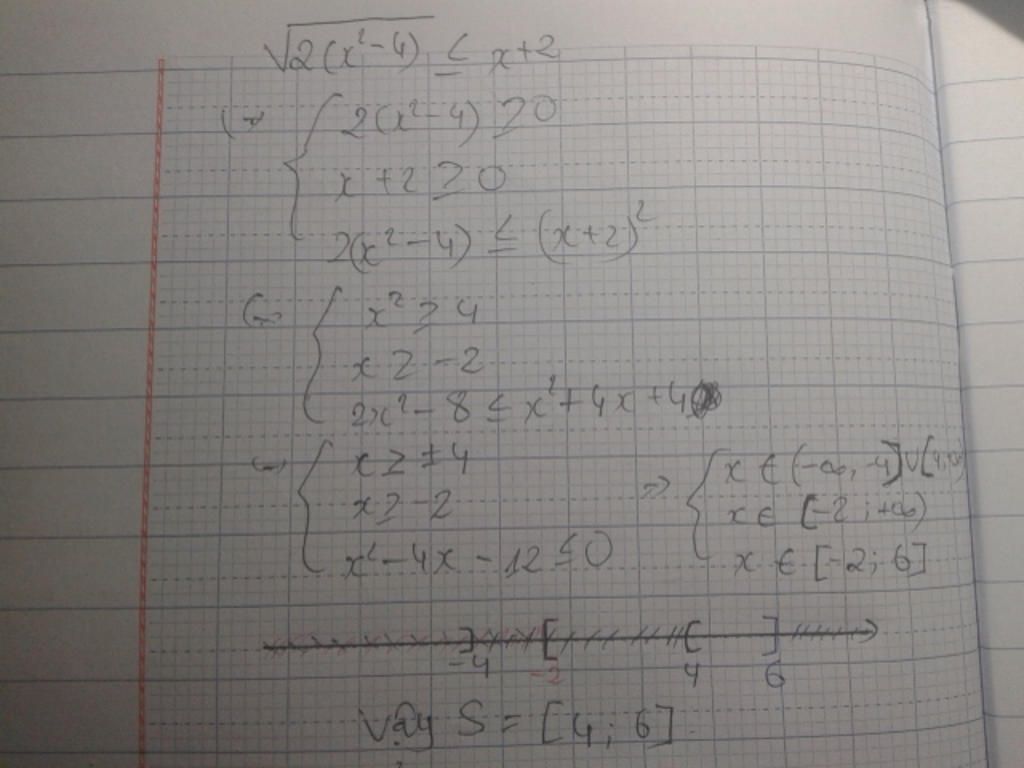 √2(x²-4) ≤ x+2
(→ { 2(x²-4) ≥ 0
x+2 ≥ 0
2(x²-4) ≤ (x+2)²
(→ { x² ≥ 4
x ≥ -2
2x²-8 ≤ x²+4x+4
(→ { x ≥ ±4 => { x ∈ (-∞; -4] ∪ [4;+∞)
x ≥ -2 x ∈ [-2; +∞)
x²-4x-12 ≤ 0 x ∈ [-2; 6]
-4 -2 4 6
Vậy S = [4; 6]